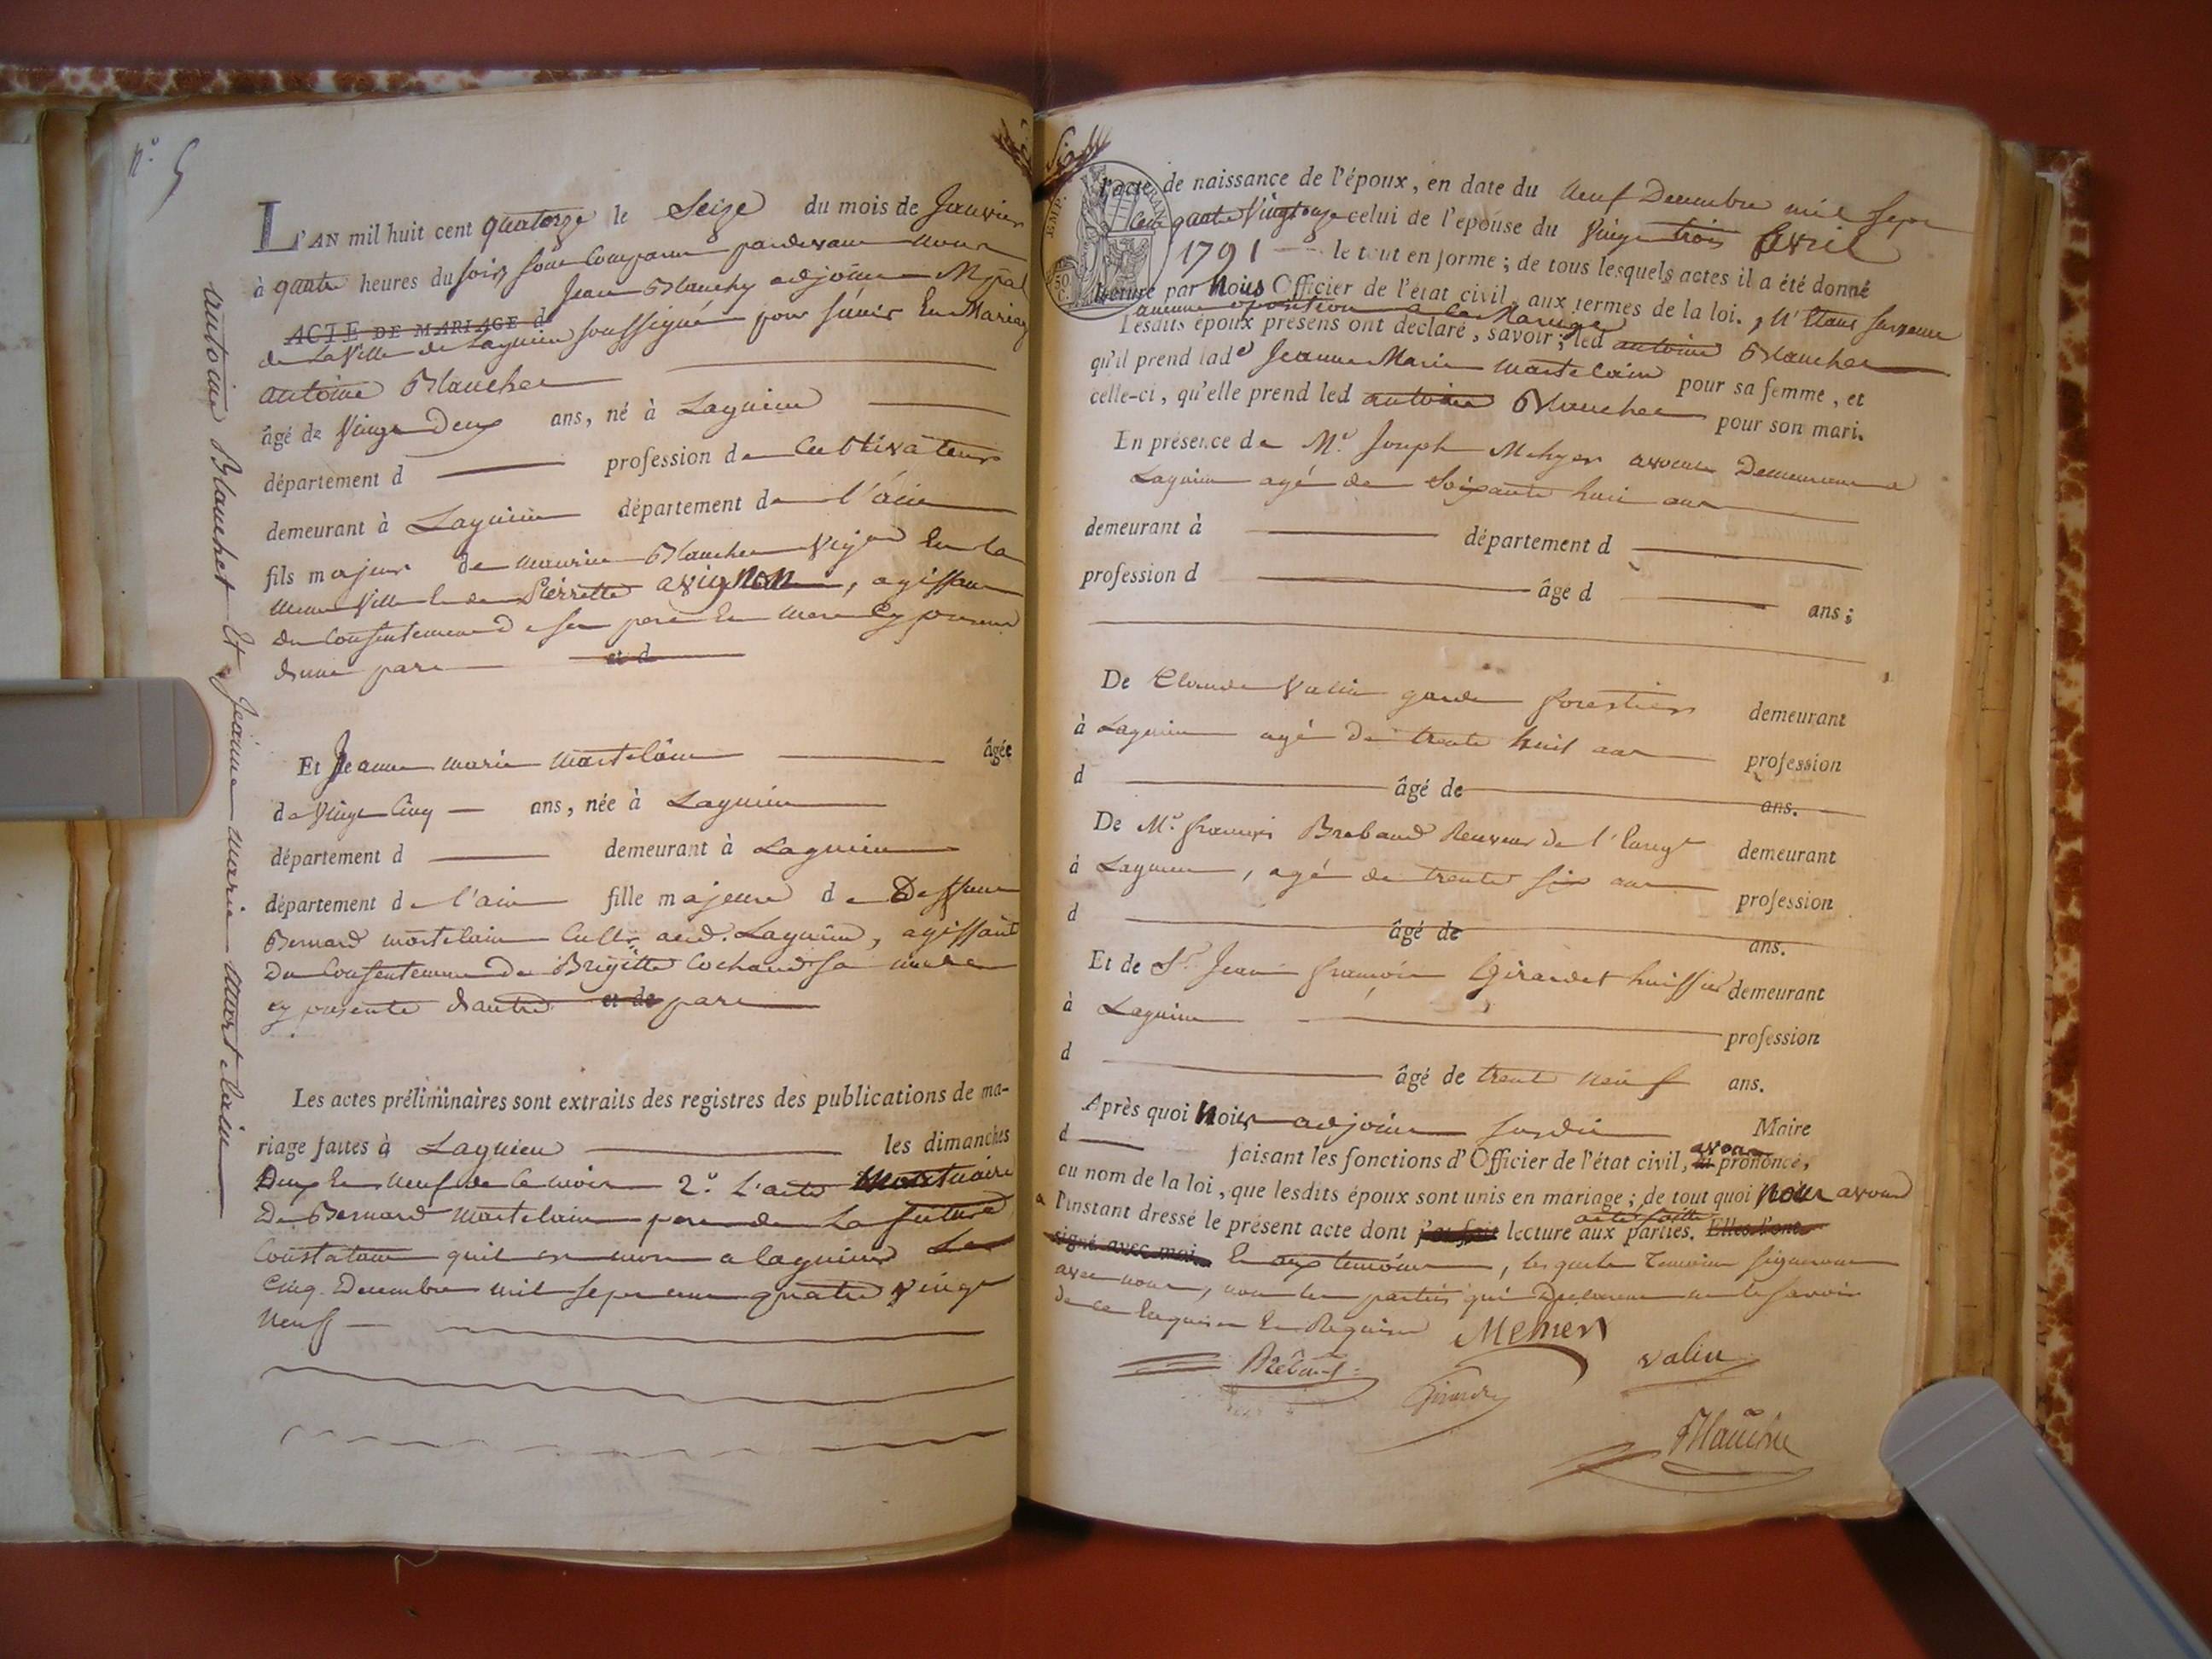 n.° 5
Antoine Blanchet Et Jeanne marie martelain
L'AN mil huit cent quatorze le Seize du mois de Janvier
à quatre heures du soir, sont Comparus pardevant nous
Jean Blanchy adjoint Mpal
ACTE DE MARIAGE d
de La Ville de Lagnieu soussigné pour s'unir En Mariage
antoine Blanchet
âgé de Vingt Deux ans, né à Lagnieu
département d profession de Cultivateur
demeurant à Lagnieu département de l'ain
fils majeur de maurice Blanchet Vig.on En la
meme Ville & de Pierrette avignon, agissant
du Consentement de ses pere Et mere Cy presents
d'une part et d
Et Jeanne marie martelain âgée
de Vingt Cinq ans, née à Lagnieu
département d demeurant à Lagnieu
département de l'ain fille majeure de Deffunt
Bernard martelain Cultr. aud. Lagnieu, agissant
du Consentement de Brigitte Cochand sa mere
cy presente d'autre et de part
Les actes préliminaires sont extraits des registres des publications de ma-
riage faites à Lagnieu les dimanches
Deux Et Neuf de Ce mois 2.° L'acte Mortuaire
De Bernard Martelain pere de La future
Constatant quil est mort a lagnieu Le
Cinq Decembre mil sept cent quatre vingt
Neuf
Six
TIMB. IMP.
50 C.
l'acte de naissance de l'époux, en date du neuf Decembre mil sept
Cent quatre Vingt onze celui de l'epouse du Vingt trois Avril
1791 le tout en forme; de tous lesquels actes il a été donné
lecture par Nous Officier de l'état civil, aux termes de la loi., N'Etant survenu
aucune oposition a le Mariage
Lesdits époux présens ont déclaré, savoir; led antoine Blanchet
qu'il prend lade Jeanne Marie martelain pour sa femme, et
celle-ci, qu'elle prend led antoine Blanchet pour son mari.
En présence de Mr. Joseph Mehyer avocat Demeurant a
Lagnieu agé de Soixante huit ans
demeurant à département d
profession d âgé d ans;
De Claude Vallin garde forestier demeurant
à Lagnieu agé de trente huit ans profession
d âgé de ans.
De Mr. françois Brebaud Receveur de l'Enregt demeurant
à Lagnieu, agé de trente six ans profession
d âgé de ans.
Et de Sr. Jean françois Girardet huissier demeurant
à Lagnieu profession
d âgé de trente neuf ans.
Après quoi Nous adjoint susdit Maire
d faisant les fonctions d'Officier de l'état civil, avons prononcé,
au nom de la loi, que lesdits époux sont unis en mariage; de tout quoi Nous avons
a l'instant dressé le présent acte dont j'ai fait lecture a été faitte aux parties. Elles l'ont
signé avec moi. Et aux temoins, lesquels Temoins signeront
avec nous, non les parties qui Declarent ne le savoir
de ce Enquis Et Requis
Brebaud
Girardet
valin
Blanchy